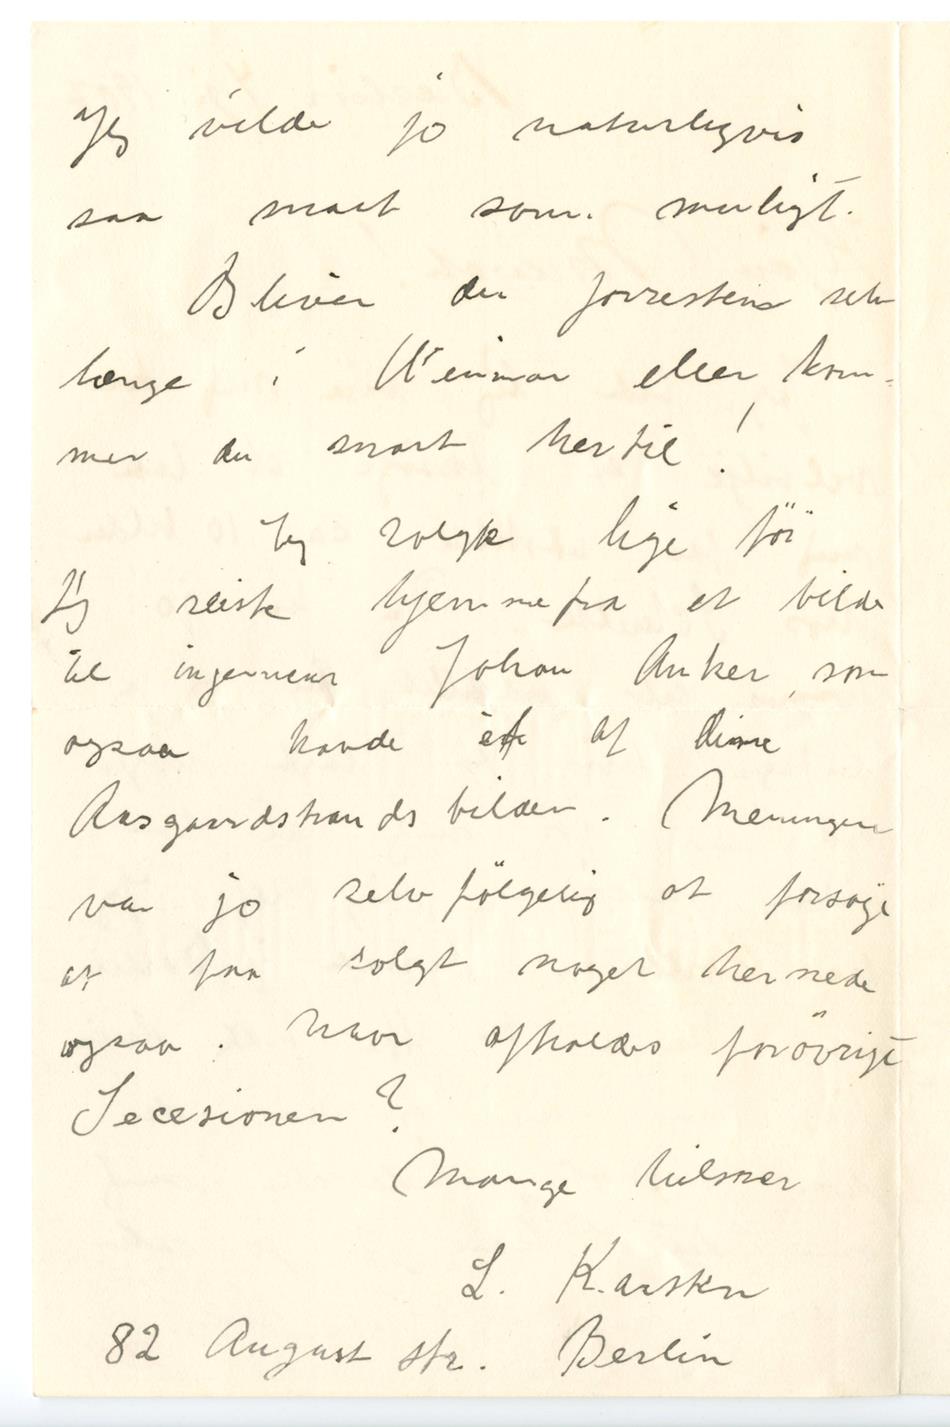 Jeg vilde jo naturligvis
saa snart som muligt.
Bliver du forrestens selv
længe i Weimar eller kom-
mer du snart hertil!
Jeg solgte lige för
Jeg reiste hjemmefra et bilde
til ingenieur Johan Anker, som
ogsaa havde et af dine
Aasgaardstrands bilder. Meningen
var jo selvfölgelig at forsöge
at faa solgt noget hernede
ogsaa. Naar afholdes forövrigt
Secesionen?
Mange hilsner
L. Karsten
82 August str. Berlin